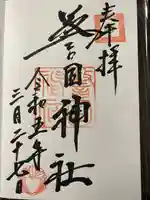 奉拝
豊国神社
令和五年
三月二十七日